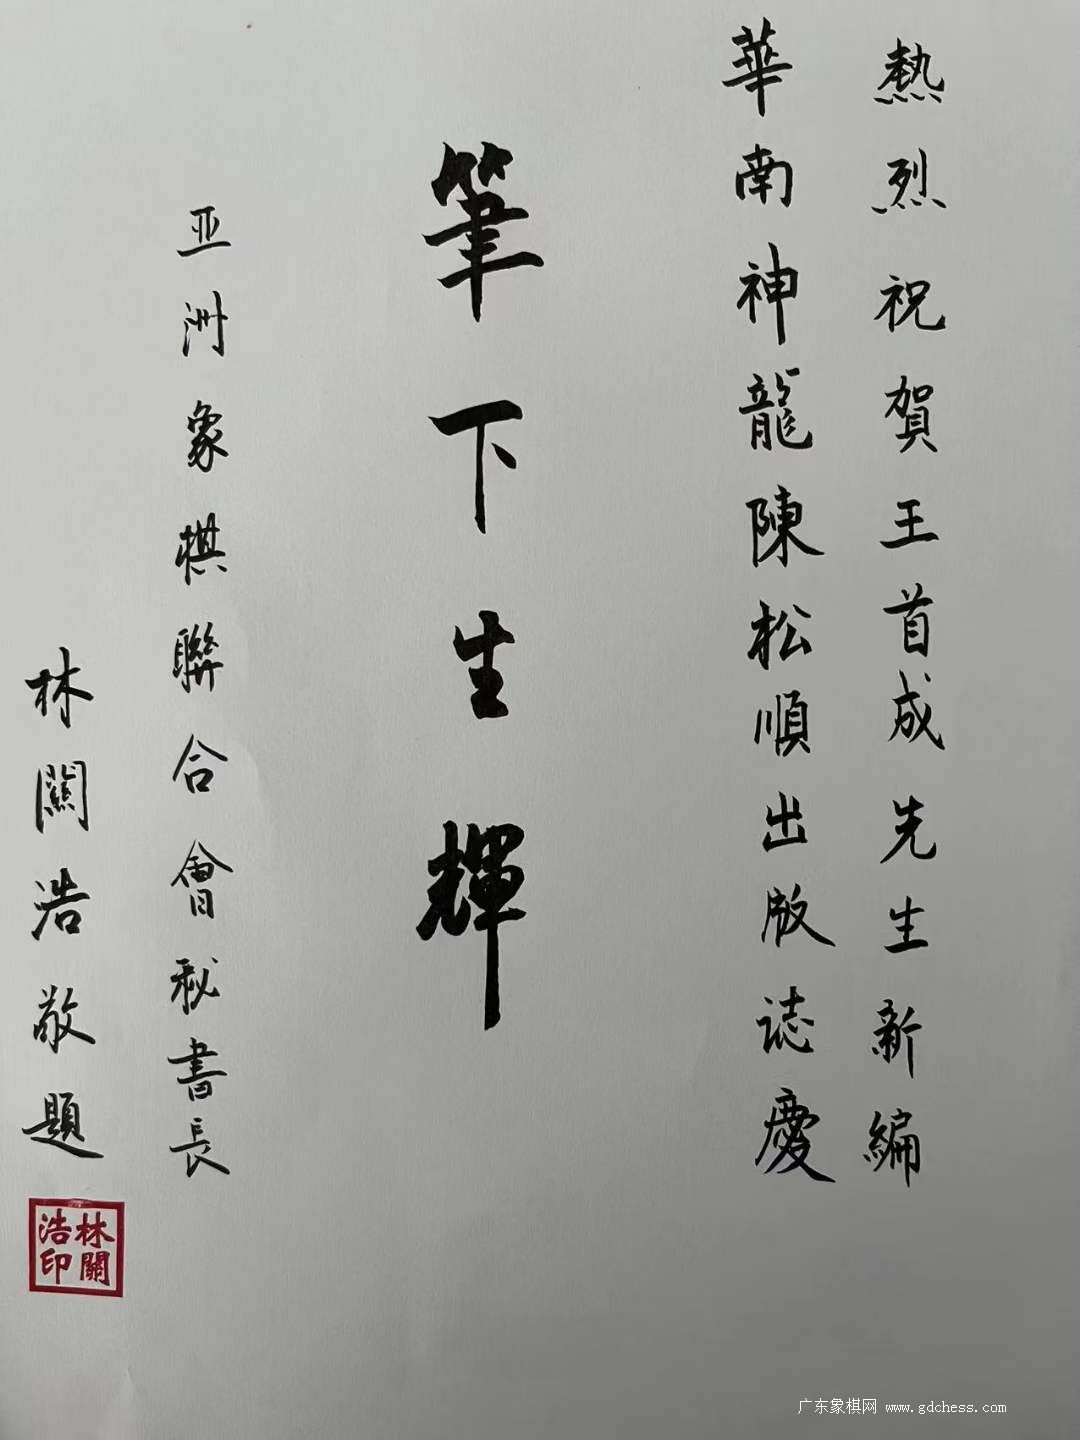 熱烈祝賀王首成先生新編
華南神龍陳松順出版誌慶
筆下生輝
亚洲象棋聯合會秘書長
林關浩敬題
林關
浩印
广东象棋网 www.gdchess.com